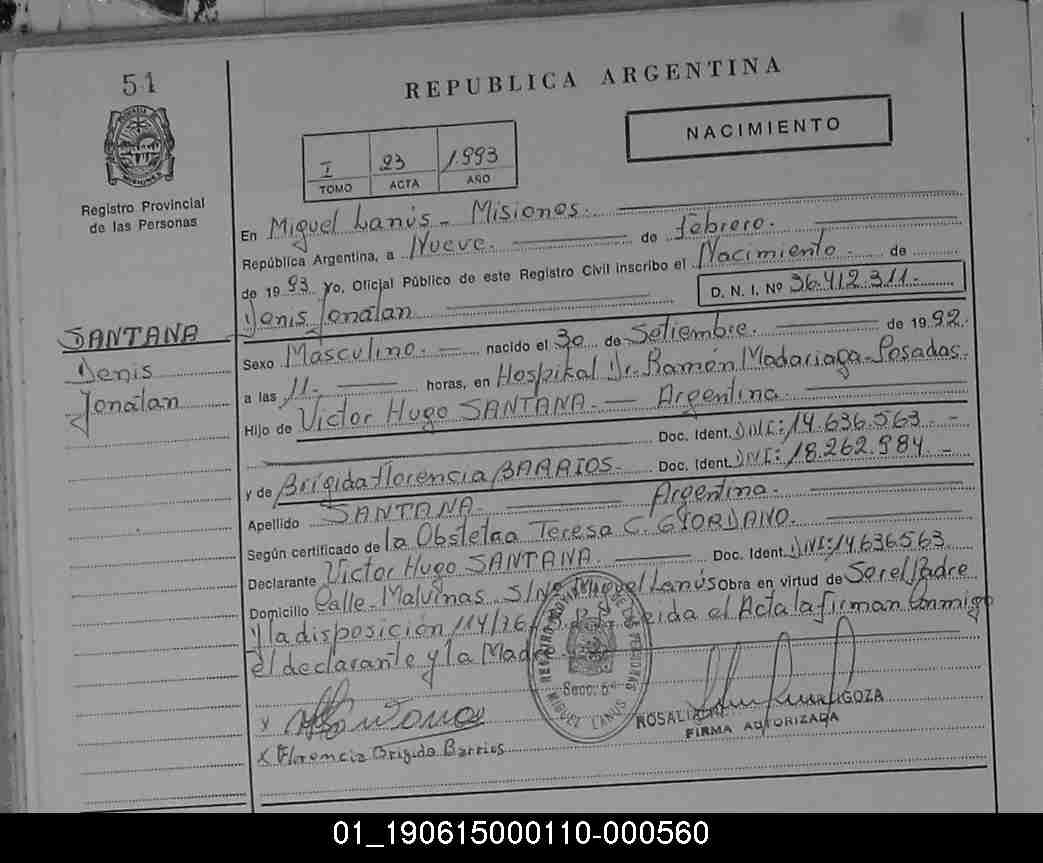 51
REPUBLICA ARGENTINA
NACIMIENTO
I 23 1.993
TOMO ACTA AÑO
Registro Provincial
de las Personas
En Miguel Lanús - Misiones.
República Argentina, a Nueve. de Febrero.
de 19 93 Yo, Oficial Público de este Registro Civil inscribo el Nacimiento de
Denis Jonatan D. N. I. Nº 36.412.311.-
SANTANA
Denis
Jonatan
Sexo Masculino.- nacido el 30 de Setiembre. de 19 92.
a las 11. horas, en Hospital Dr. Ramón Madariaga-Posadas.
Hijo de Victor Hugo SANTANA.- Argentina.
Doc. Ident. DNI:14.636.563.-
y de Brigida Florencia BARRIOS. Doc. Ident. DNI:18.262.984.-
Apellido SANTANA. Argentina.
Según certificado de la Obstetra Teresa C. GIORDANO.
Declarante Victor Hugo SANTANA. Doc. Ident. DNI:14.636563
Domicilio Calle-Malvinas S/Nº Miguel Lanús Obra en virtud de Ser el Padre
Y la disposición 114/76 el Acta la firman Conmigo
el declarante y la Madre
REGISTRO PROVINCIAL DE LAS PERSONAS
Secc. 5ª
MIGUEL LANUS
X
X Florencia Brigida Barrios
ROSALIA GOZA
FIRMA AUTORIZADA
01_190615000110-000560